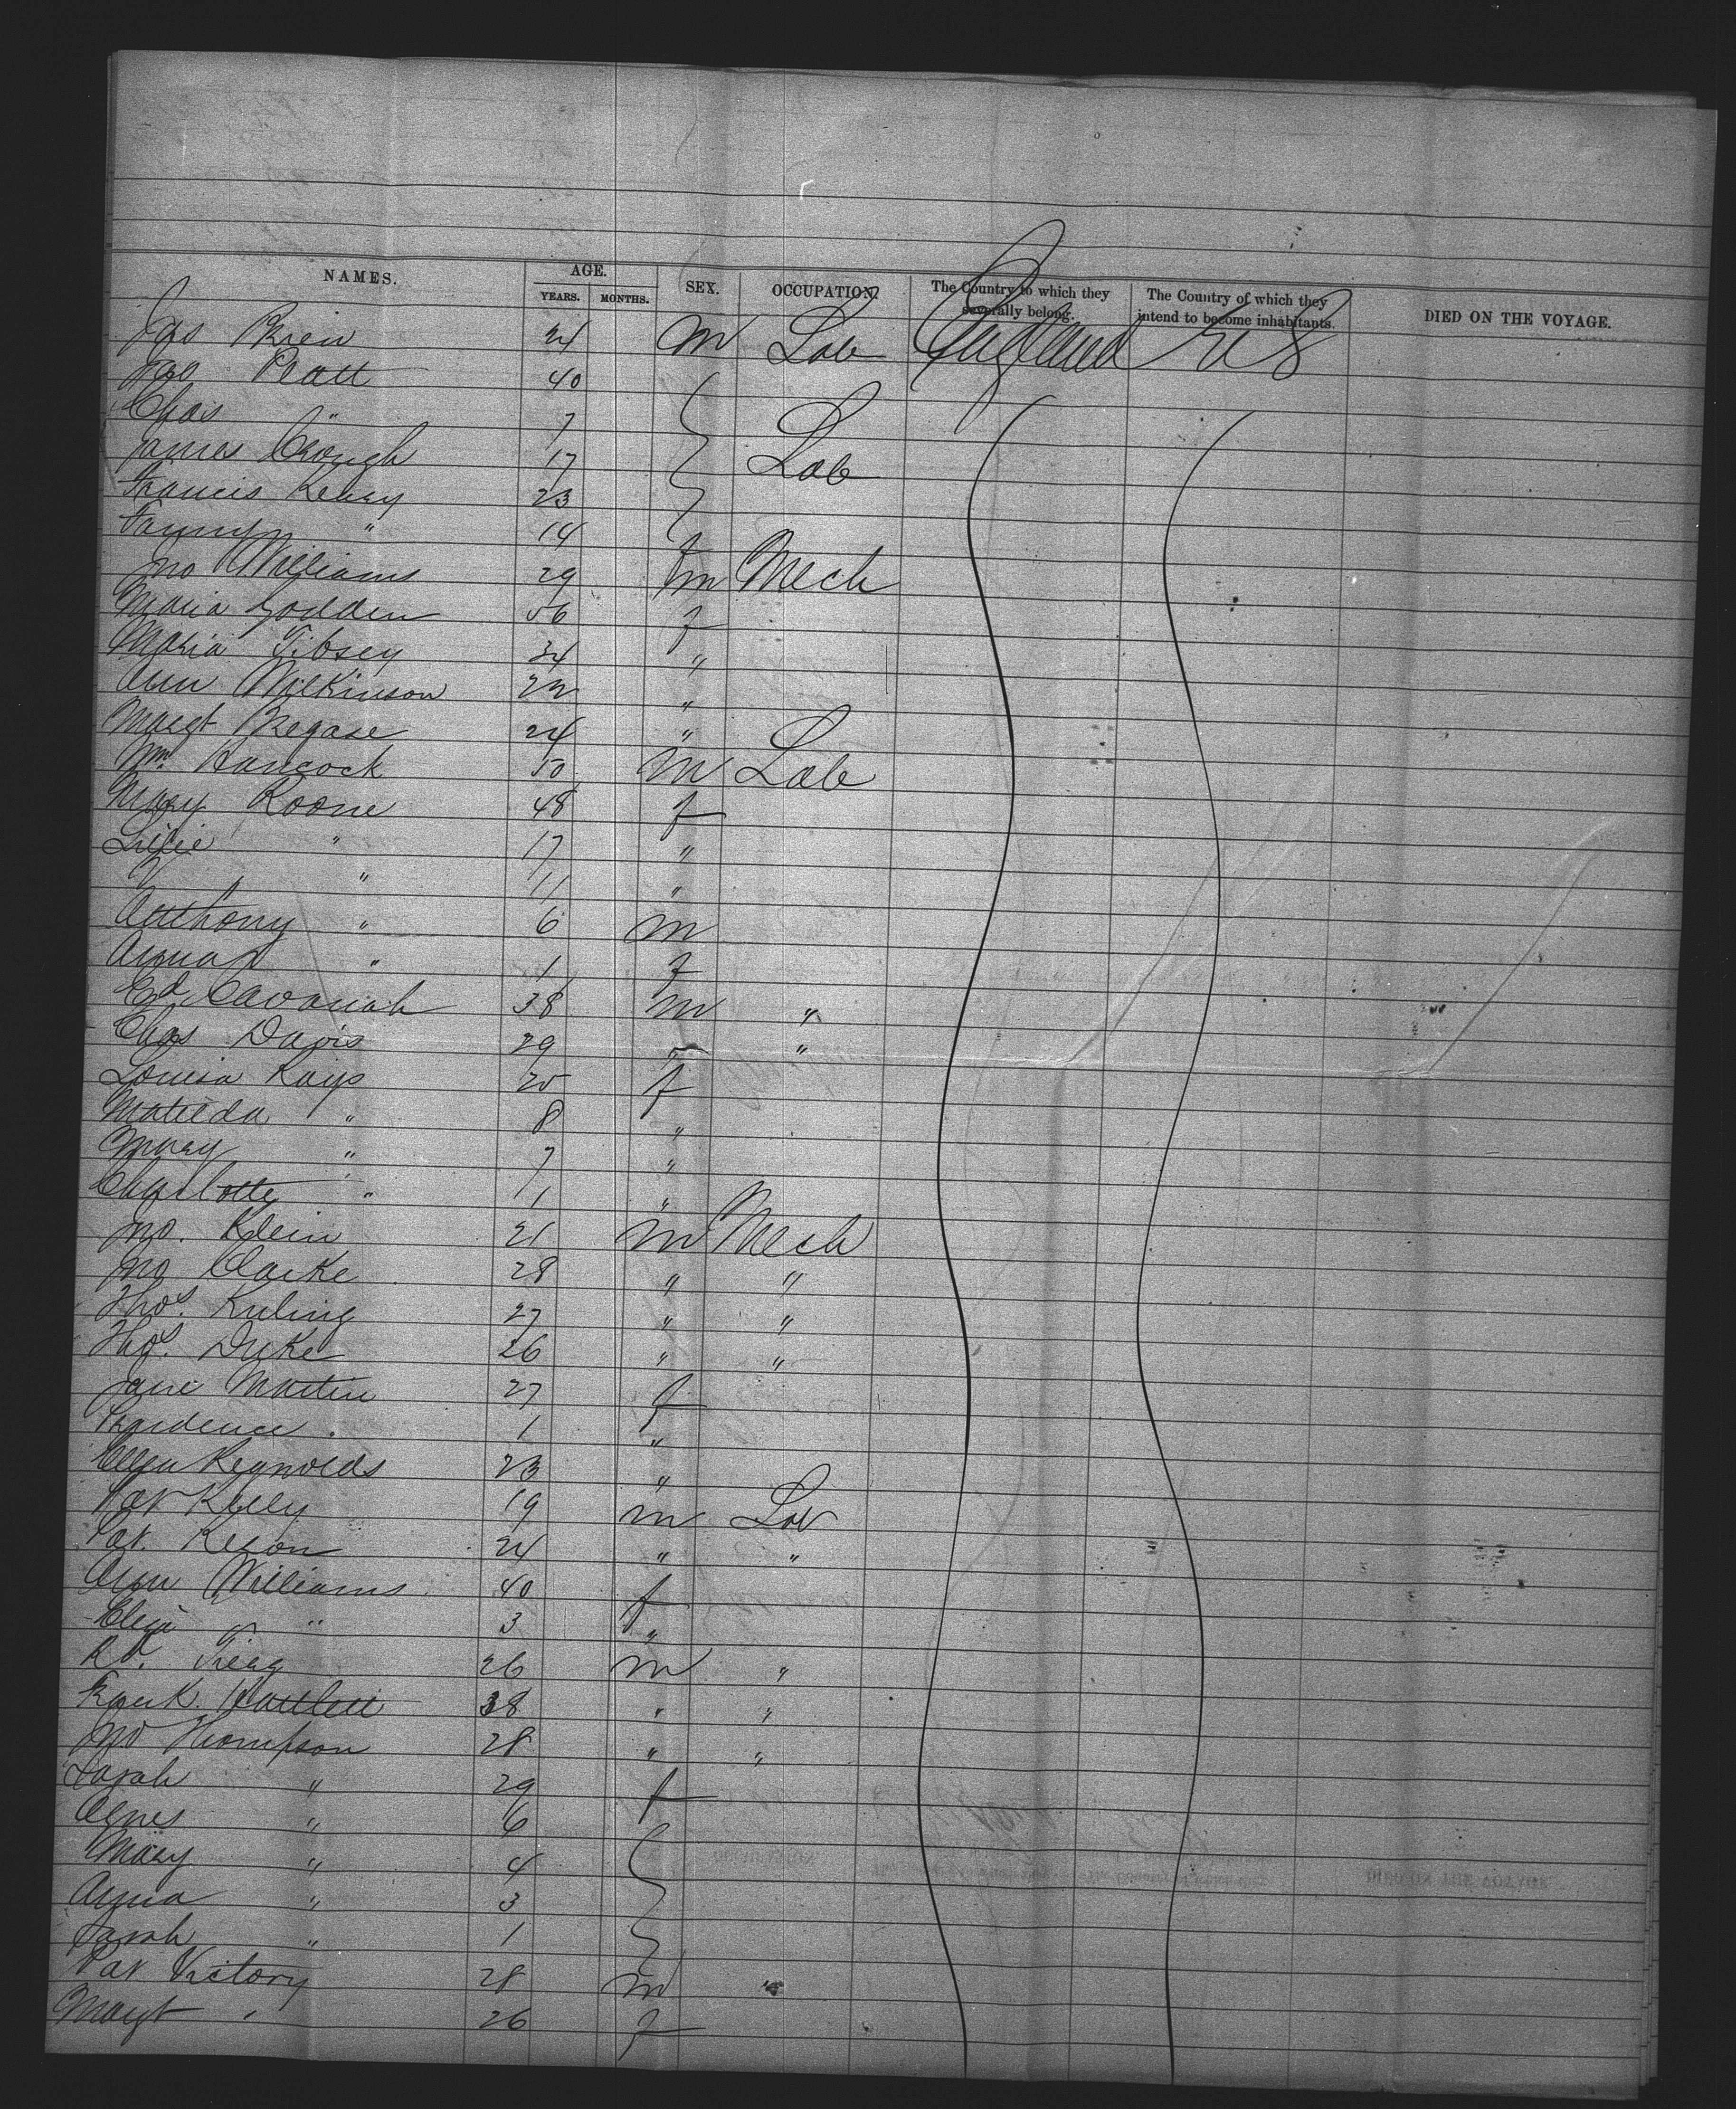 NAMES. AGE. SEX. OCCUPATION. The Country to which they severally belong. The Country of which they intend to become inhabitants. DIED ON THE VOYAGE.
YEARS. MONTHS.
Jas Brien 24 m Lab England U S
Platt 40
Chas " 7
James Clough 17 Lab
Francis 23
Fanny " 14 f
Jno Williams 29 m Mech
Maria Godden 56 f
Maria Tibsey 34 "
Ann Wilkinson 22 "
Margt 24 "
Wm. Hancock 50 m Lab
Mary Roone 48 f
Lizzie " 17 "
" 11 "
Anthony " 6 m
Anna " 1 f
Ed Cavanah 38 m "
Chas Davis 29 " "
Louisa Kays 25 f
Matilda " 8 "
Mary " 7 "
Charlotte " 1 "
Jno. Klein 21 m Mech
Jno Clarke 28 " "
Thos. Kuling 27 " "
Thos. Duke 26 " "
Jane Martin 27 f
Prudence 1 "
Ellen Reynolds 23 "
Pat Kelly 19 m Lab
Pat. 24 " "
Ann Williams 40 f
Eliza " 3 "
26 m "
Frank Bartlett 38 " "
Jno Thompson 28 " "
Sarah " 29 f
Agnes " 6
Mary " 4
Anna " 3
Sarah " 1
Pat Victory 28 m "
Margt " 26 f